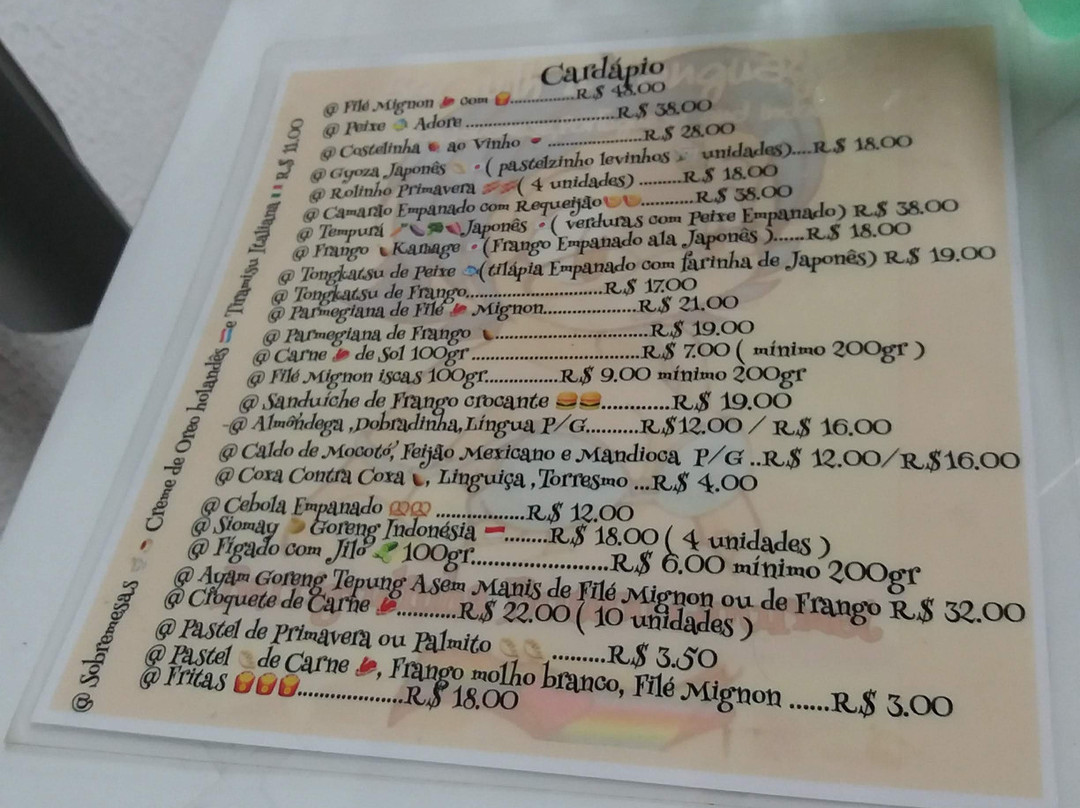 Cardápio
@ Filé Mignon 🥩 com 🍟..............R$ 48.00
@ Peixe Adore ..................................R$ 38.00
@ Costelinha ao Vinho 🍷 .......................R$ 28.00
@ Gyoza Japonês 🥟 • ( pastelzinho levinhos unidades)....R$ 18.00
@ Rolinho Primavera 🥓🥓( 4 unidades) ..........R$ 18.00
@ Camarão Empanado com Requeijão🍤🍤............R$ 38.00
@ Tempurá 🥕🍆🥦🍠Japonês • ( verduras com Peixe Empanado) R$ 38.00
@ Frango 🍗Karaage • (Frango Empanado ala Japonês ).......R$ 18.00
@ Tongkatsu de Peixe 🐟(tilápia Empanado com farinha de Japonês) R$ 19.00
@ Tongkatsu de Frango..............................R$ 17.00
@ Parmegiana de Filé 🥩 Mignon.....................R$ 21.00
@ Parmegiana de Frango 🍗...................................R$ 19.00
@ Carne 🥩 de Sol 100gr......................................R$ 7.00 ( mínimo 200gr )
@ Filé Mignon iscas 100gr................R$ 9.00 mínimo 200gr
@ Sanduíche de Frango crocante 🍔🍔...............R$ 19.00
-@ Almôndega ,Dobradinha,Língua P/G..........R$12.00 / R$ 16.00
@ Caldo de Mocotó, Feijão Mexicano e Mandioca P/G ..R$ 12.00/R$16.00
@ Coxa Contra Coxa 🍗, Linguiça ,Torresmo ...R$ 4.00
@ Cebola Empanado 🥨🥨 ..................R$ 12.00
@ Siomay 🥟 Goreng Indonésia 🇮🇩.........R$ 18.00 ( 4 unidades )
@ Fígado com Jiló 🥬 100gr...........................R$ 6.00 mínimo 200gr
@ Ayam Goreng Tepung Asem Manis de Filé Mignon ou de Frango R$ 32.00
@ Croquete de Carne 🥩..............R$ 22.00 ( 10 unidades )
@ Pastel de Primavera ou Palmito 🥟🥟 .........R$ 3.50
@ Pastel 🥟de Carne 🥩, Frango molho branco, Filé Mignon ......R$ 3.00
@ Fritas 🍟🍟🍟......................R$ 18.00
@ Sobremesas Creme de Oreo holandês 🇳🇱e Tiramisu Italiana 🇮🇹R$ 11.00